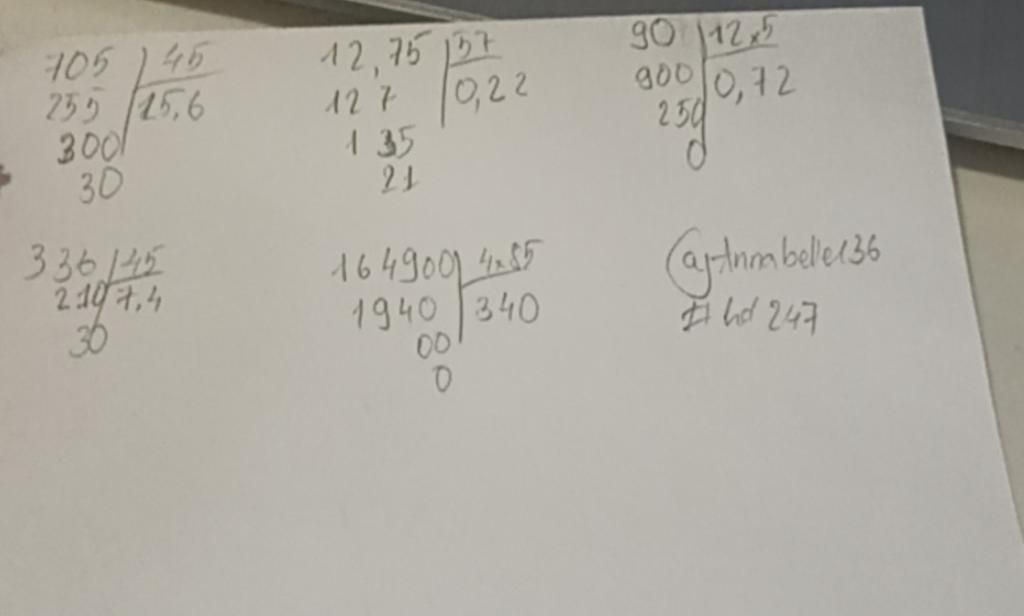 705 45
255 15,6
300
30
12,75 57
127 0,22
135
21
90 12,5
900 0,72
250
0
336 45
210 7,4
30
164900 4,85
1940 340
00
0
@Annabelle136
#hd247